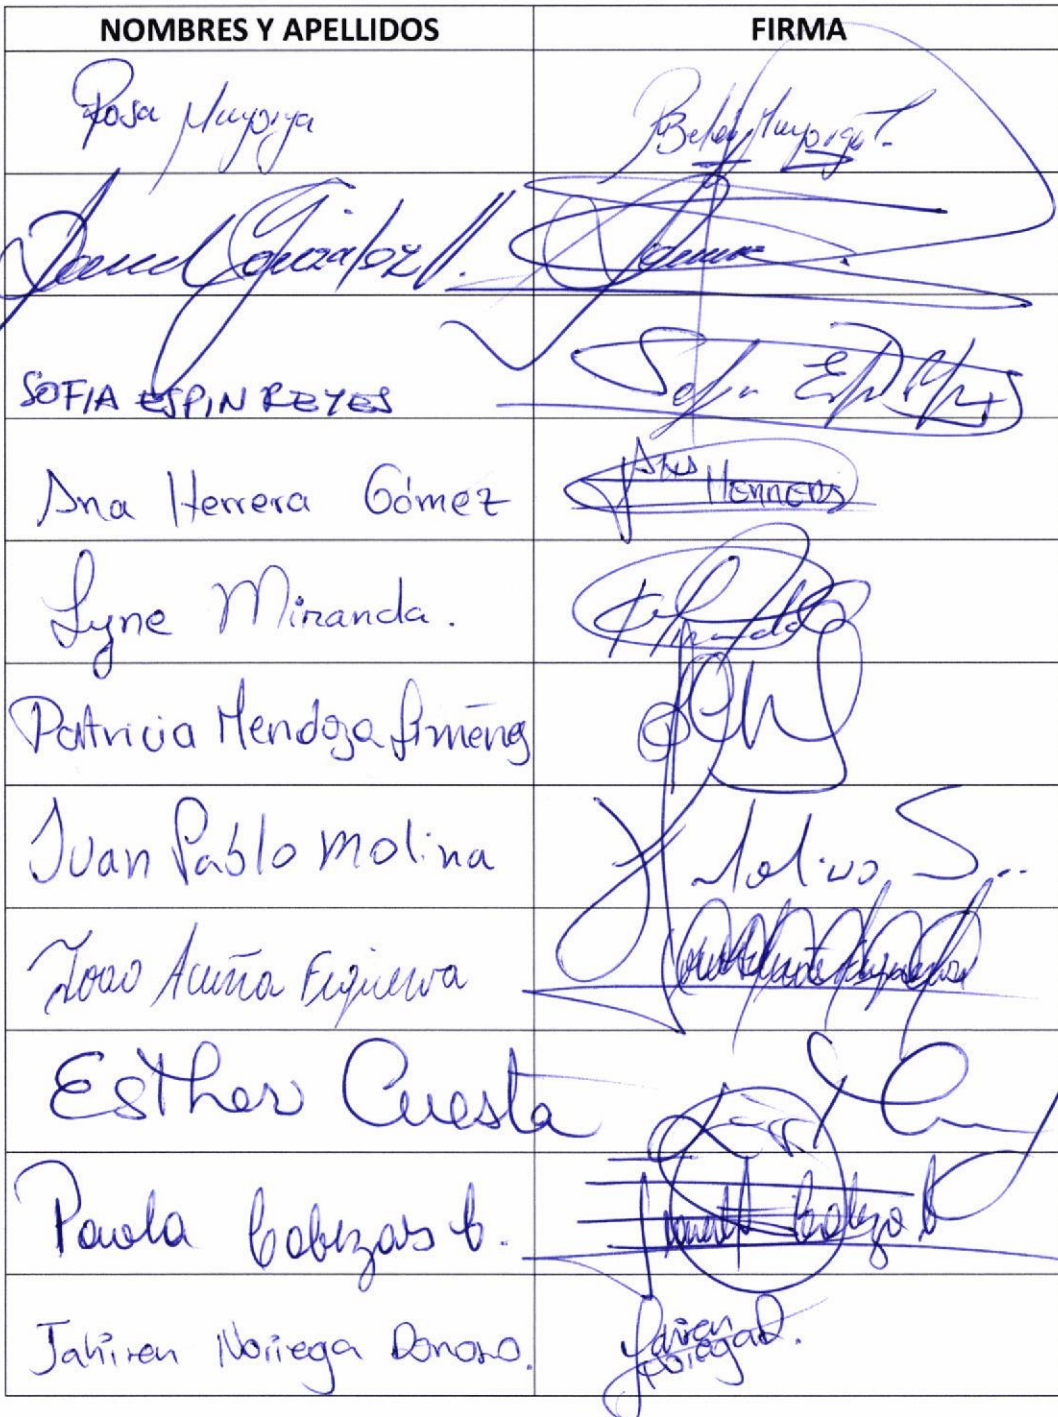 NOMBRES Y APELLIDOS FIRMA
Rosa Mayorga Belén Mayorga T.
González V.
SOFIA ESPIN REYES Sofia Espin Reyes
Ana Herrera Gómez Ana Herrera
Lyne Miranda. Miranda
Patricia Mendoza Jiménez
Juan Pablo Molina Molina S..
Joao Acuña Figueroa
Esther Cuesta
Paola Cabezas C. Cabezas
Jahiren Noriega Donoso. Jahiren Noriega D.